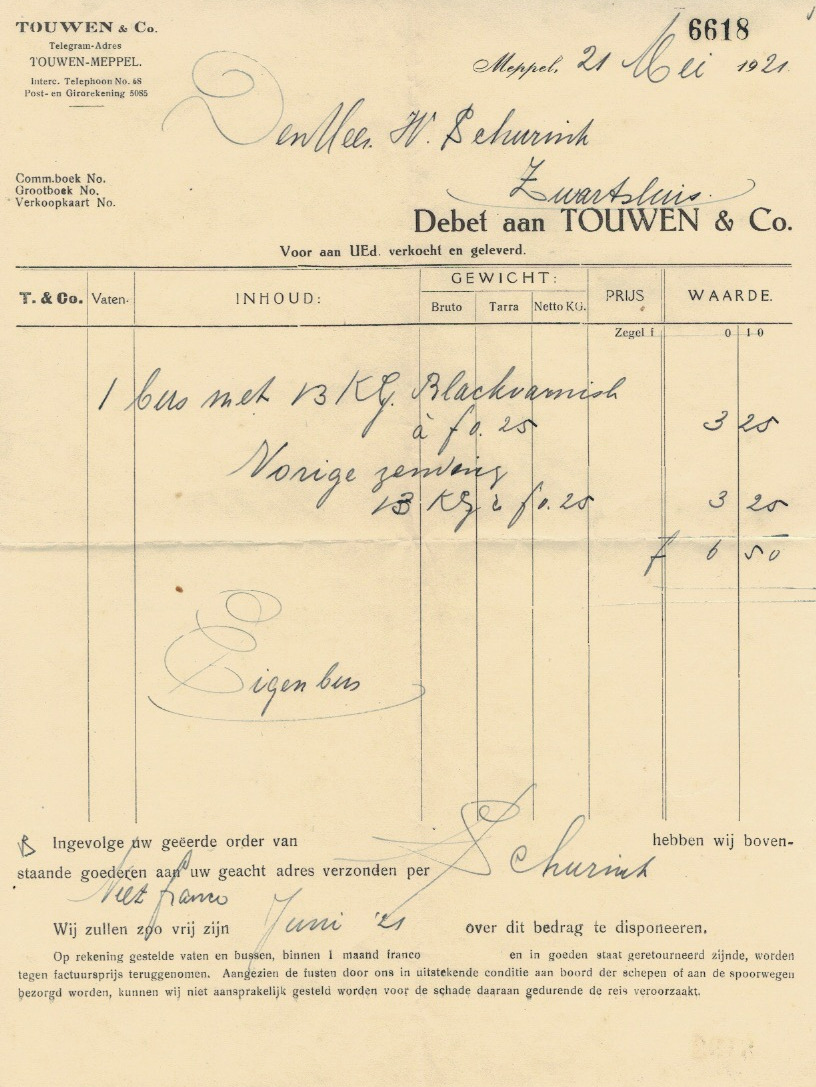 TOUWEN & Co.
Telegram-Adres
TOUWEN-MEPPEL.
Interc. Telephoon No. 48
Post- en Girorekening 5085
6618
Meppel, 21 Mei 1921
Den Heer H. Schurink
Zwartsluis.
Comm.boek No.
Grootboek No.
Verkoopkaart No.
Debet aan TOUWEN & Co.
Voor aan UEd. verkocht en geleverd.
T. & Co. Vaten. INHOUD: GEWICHT: PRIJS WAARDE.
Bruto Tarra Netto KG.
Zegel f 0 10
1 bus met 13 KG. Blackvarnish
à f 0.25 3 25
Vorige zending
13 KG à f 0.25 3 25
f 6 50
Eigen bus
Ingevolge uw geëerde order van hebben wij boven-
staande goederen aan uw geacht adres verzonden per Schurink
Niet franco
Wij zullen zoo vrij zijn Juni '21 over dit bedrag te disponeeren.
Op rekening gestelde vaten en bussen, binnen 1 maand franco en in goeden staat geretourneerd zijnde, worden
tegen factuursprijs teruggenomen. Aangezien de fusten door ons in uitstekende conditie aan boord der schepen of aan de spoorwegen
bezorgd worden, kunnen wij niet aansprakelijk gesteld worden voor de schade daaraan gedurende de reis veroorzaakt.